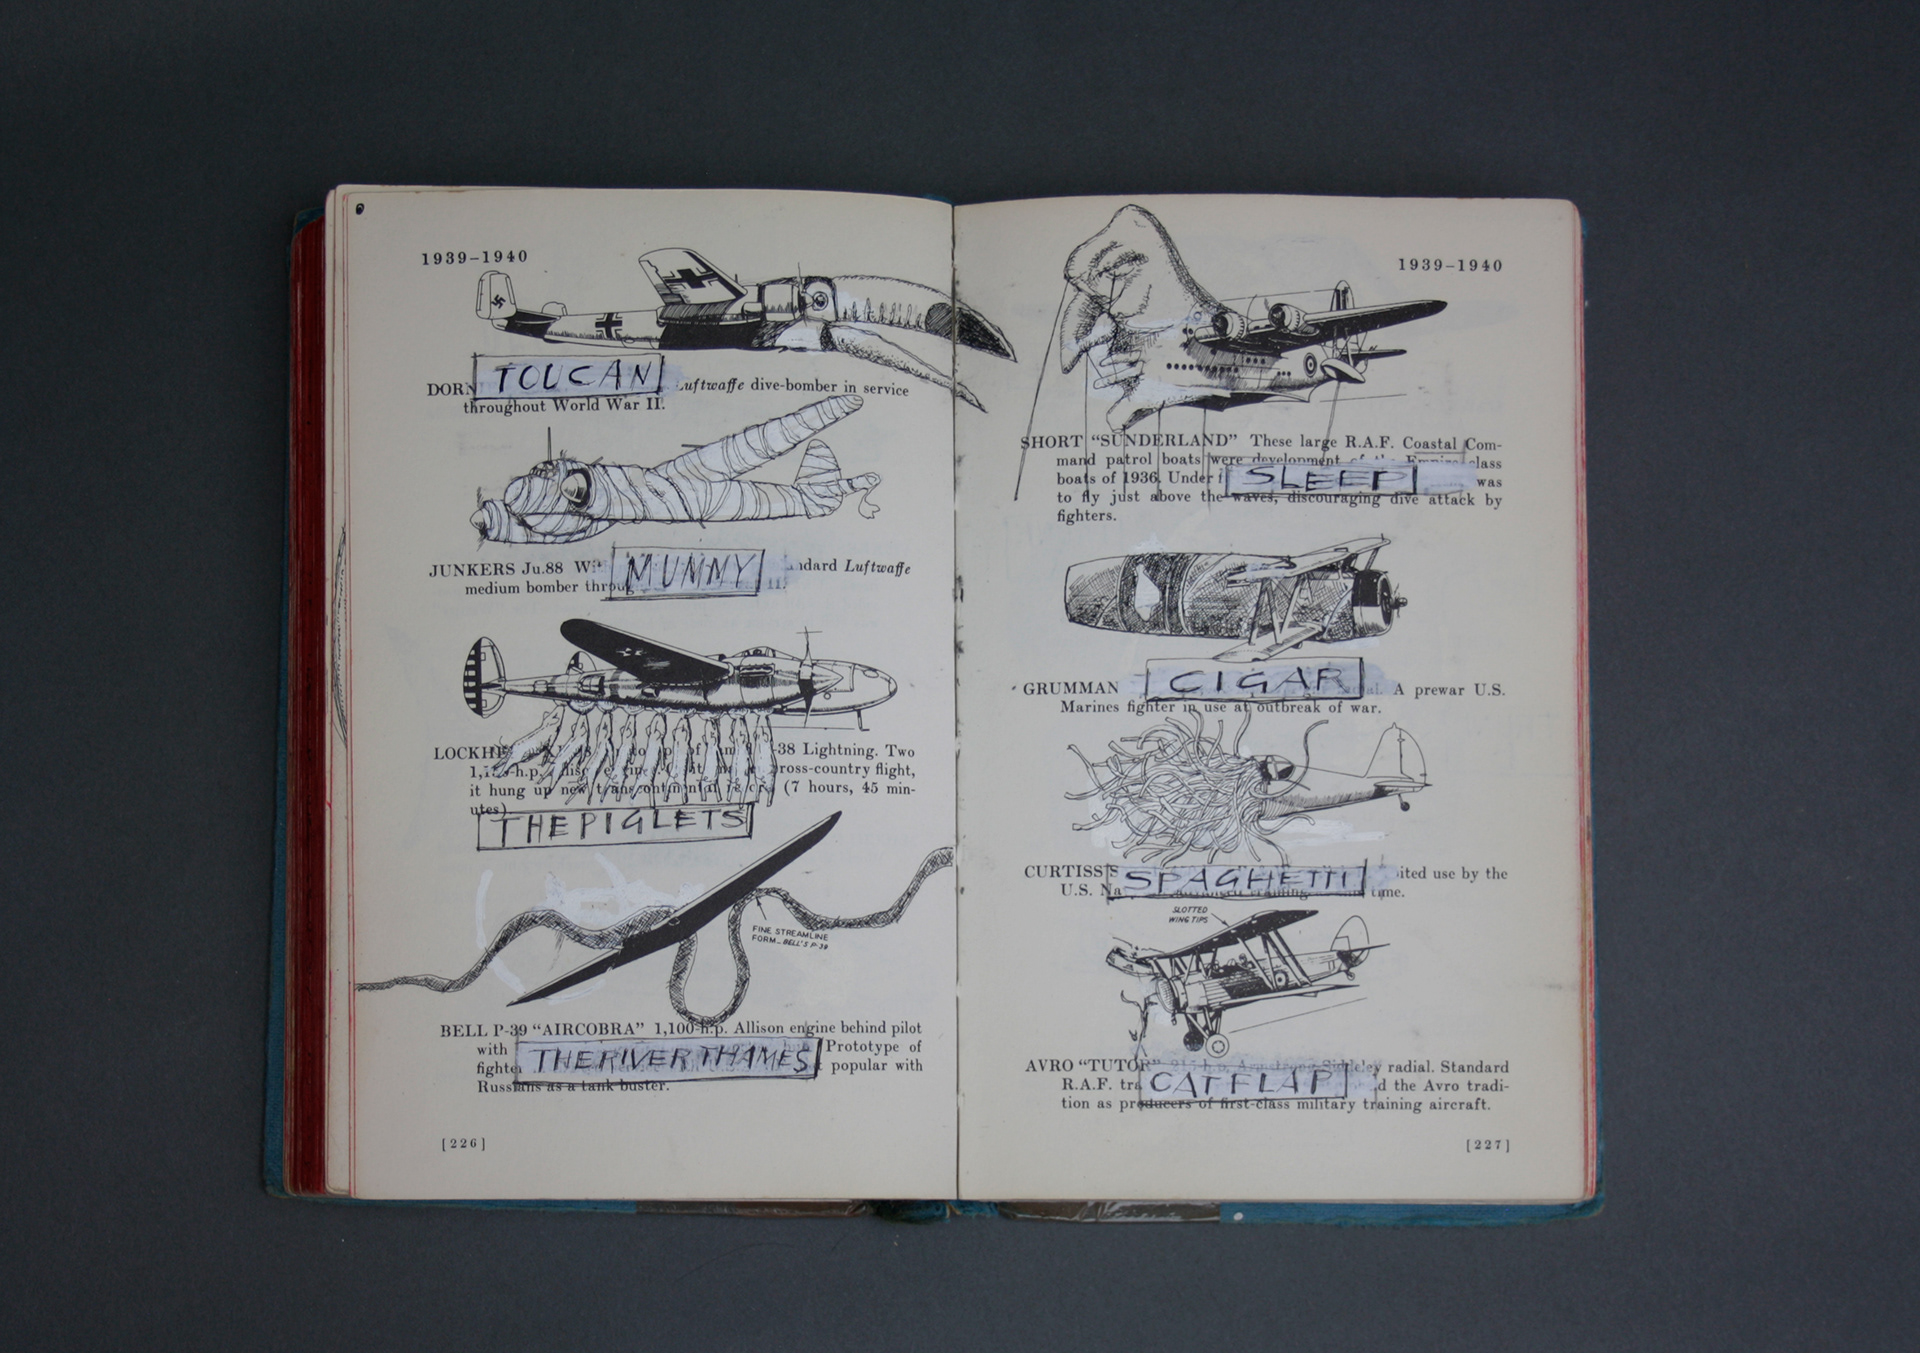 1939–1940
TOUCAN
DORN Luftwaffe dive-bomber in service
throughout World War II.
JUNKERS Ju.88 ndard Luftwaffe
MUMMY
medium bomber throug II.
LOCKHE -38 Lightning. Two
ross-country flight,
it hung up new transcontinental record (7 hours, 45 min-
utes)
THE PIGLETS
FINE STREAMLINE
FORM... BELL'S P-39
BELL P-39 “AIRCOBRA” 1,100-h.p. Allison engine behind pilot
with Prototype of
THE RIVER THAMES
fighte popular with
Russians as a tank buster.
[226]
1939–1940
SHORT “SUNDERLAND” These large R.A.F. Coastal Com-
mand patrol boats were development of the Empire class
boats of 1936. Under f was
SLEEP
to fly just above the waves, discouraging dive attack by
fighters.
CIGAR
GRUMMAN A prewar U.S.
Marines fighter in use at outbreak of war.
CURTISS S ited use by the
SPAGHETTI
U.S. Na time.
SLOTTED
WING TIPS
AVRO “TUTOR” 215-h.p. Armstrong Siddeley radial. Standard
R.A.F. tra d the Avro tradi-
CATFLAP
tion as producers of first-class military training aircraft.
[227]